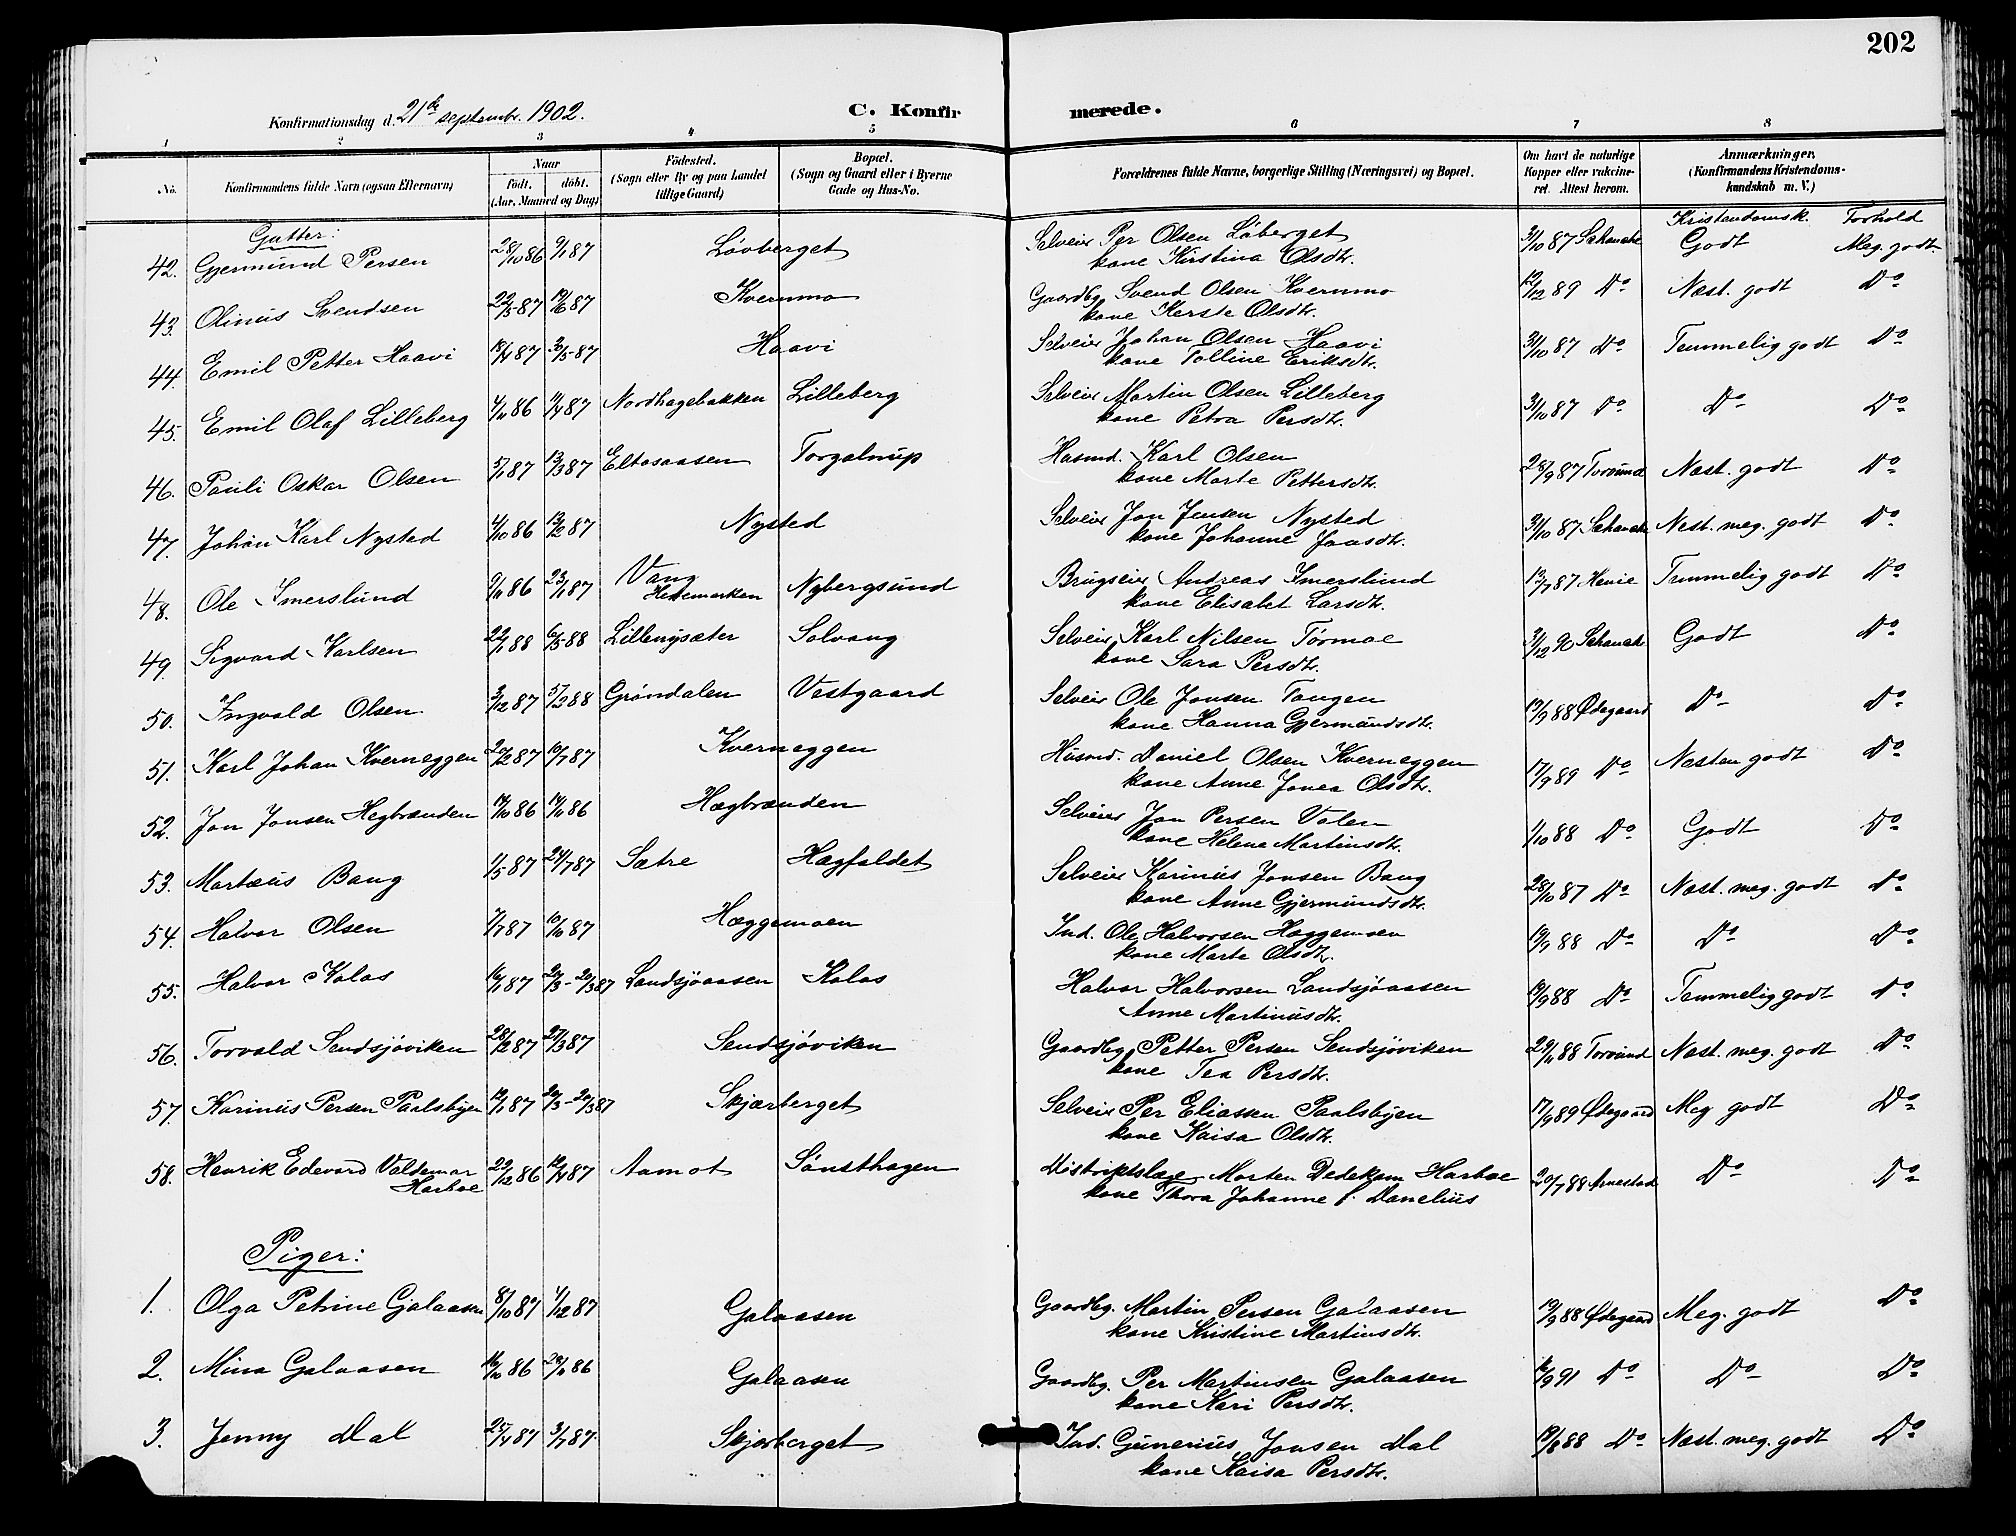 202
Konfirmationsdag d. 21de septembr. 1902. C. Konfirmerede.
1 2 3 4 5 6 7 8
No. Konfirmandens fulde Navn (ogsaa Efternavn) Naar født. døbt. (Aar, Maaned og Dag) Fødested. (Sogn eller By og paa Landet tillige Gaard) Bopæl. (Sogn og Gaard eller i Byerne Gade og Hus-No. Forældrenes fulde Navne, borgerlige Stilling (Næringsvei) og Bopæl. Om havt de naturlige Kopper eller vakcineret. Attest herom. Anmærkninger. (Konfirmandens Kristendomskundskab m. V.)
Gutter: Kristendomsk. Forhold
42. Gjermund Persen 28/10 86 9/1 87 Løvberget Selveier Per Olsen Løberget 31/10 87 Godt Meg. godt
kone Kirstina Olsdtr.
43. Olinus Svendsen 22/5 87 19/6 87 Kvernmo Gaardbg. Svend Olsen Kvernmo 12/12 89 Do Næst. godt Do
kone Kerste Olsdtr.
44. Emil Petter Haavi 18/4 87 30/5 87 Haavi Selveier Johan Olsen Haavi 31/10 87 Do Temmelig godt Do
kone Polline Eriksdtr.
45. Emil Olaf Lilleberg 11/4 87 Nordhagebakken Lilleberg Selveier Martin Olsen Lilleberg 31/10 87 Do Do Do
kone Petra Persdtr.
46. Pauli Oskar Olsen 5/1 87 13/3 87 Eltaaasen Husmd. Karl Olsen 28/9 87 Torsund Næst. godt Do
kone Marte Pettersdtr.
47. Johan Karl Nysted 4/10 86 13/2 87 Nysted Selveier Jon Jensen Nysted 31/10 87 Næst. meg. godt Do
kone Johanne Jonsdtr.
48. Ole Imerslund 9/11 86 23/1 87 Vang Hedemarken Nybergsund Brugseier Andreas Imerslund 13/7 87 Temmelig godt Do
kone Elisabet Larsdtr.
49. Sigvard Karlsen 22/1 88 6/5 88 Lillenysæter Solvang Selveier Karl Nilsen Tørmoe 31/12 90 Godt Do
kone Sara Persdtr.
50. Ingvald Olsen 3/12 87 5/2 88 Grøndalen Vestgaard Selveier Ole Jonsen Tangen 19/9 88 Ødegaard Do Do
kone Hanna Gjermundsdtr.
51. Karl Johan Kverneggen 2/2 87 10/7 87 Kverneggen Husmd. Daniel Olsen Kverneggen 17/9 89 Do Næsten godt Do
kone Anne Jonea Olsdtr.
52. Jon Jonsen Hegbrænden 14/10 86 14/11 86 Hægbrænden Selveier Jon Persen Volen 1/10 88 Do Godt Do
kone Helene Martinsdtr.
53. Martæus Bang 1/5 87 24/7 87 Sætre Hagfaldet Selveier Karinus Jonsen Bang 28/10 87 Do Næst. meg. godt Do
kone Anne Gjermundsdtr.
54. Halvor Olsen 7/7 87 10/10 87 Hæggemoen Ind. Ole Halvorsen Hæggemoen 19/9 88 Do Do Do
kone Marte Olsdtr.
55. Halvor Kolos 16/1 87 20/3 - 20/3 87 Landsjøaasen Kolos Halvor Halvorsen Landsjøaasen 19/9 88 Do Temmelig godt Do
Anne Martinusdtr.
56. Torvald Sendsjøviken 28/2 87 27/3 87 Sendsjøviken Gaardbg. Petter Persen Sendsjøviken 29/11 88 Torsund Næst. meg. godt Do
kone Tea Persdtr.
57. Karinus Persen Paalsbyen 12/1 87 20/3 - 20/3 87 Skjærberget Selveier Per Eliassen Paalsbyen 17/9 89 Ødegaard Meg godt Do
kone Kaisa Olsdtr.
58. Henrik Edevard Valdemar Harboe 29/12 86 12/4 87 Aamot Sønsthagen Distriktslæge Morten Dedekam Harboe 20/7 88 Arnestad Do Do
kone Thora Johanne f. Danelius
Piger:
1. Olga Petrine Galaasen 8/10 87 4/12 87 Galaasen Gaardbg. Martin Persen Galaasen 19/9 88 Ødegaard Meg. godt Do
kone Kristine Martinsdtr.
2. Mina Galaasen 16/10 86 28/11 86 Galaasen Gaardbg. Per Martinsen Galaasen 16/9 91 Do Do Do
kone Kari Persdtr.
3. Jenny Dal 25/4 87 3/7 87 Skjærberget Ind. Gunerius Jonsen Dal 19/8 88 Do Næst. meg. godt Do
kone Kaisa Persdtr.